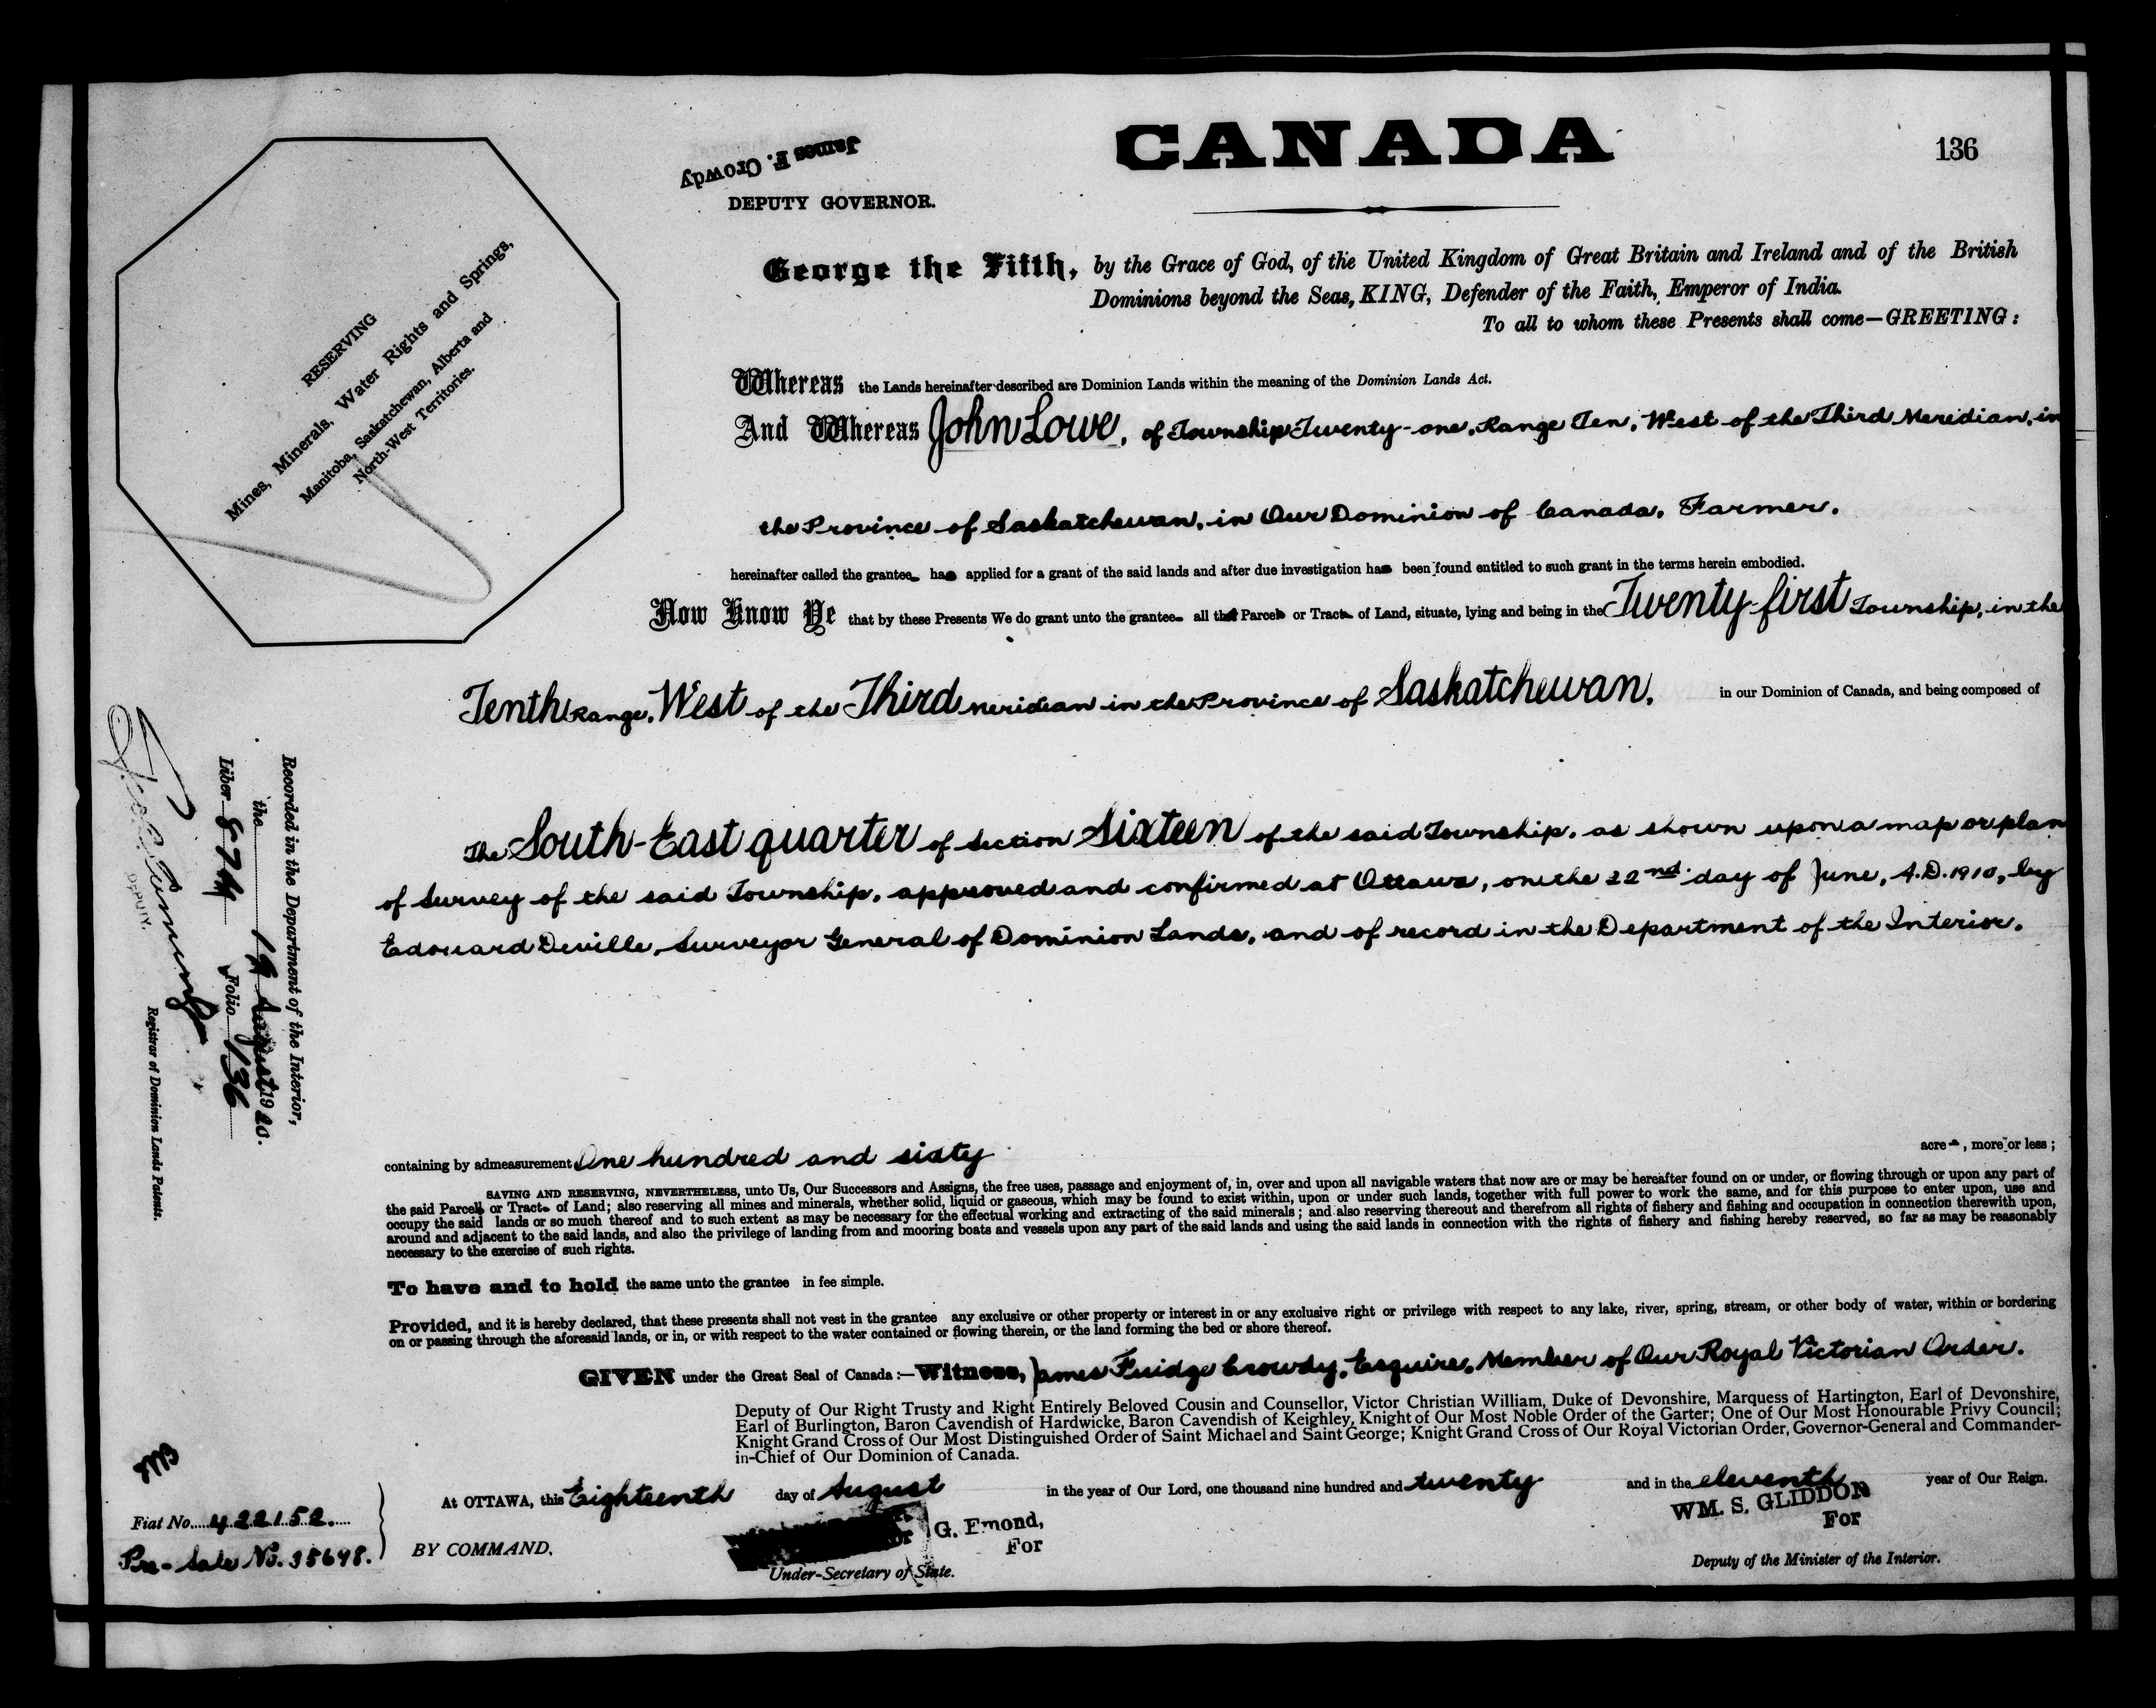 CANADA
136
James F. Crowdy
DEPUTY GOVERNOR.
RESERVING
Mines, Minerals, Water Rights and Springs,
Manitoba, Saskatchewan, Alberta and
North-West Territories.
George the Fifth, by the Grace of God, of the United Kingdom of Great Britain and Ireland and of the British
Dominions beyond the Seas, KING, Defender of the Faith, Emperor of India.
To all to whom these Presents shall come—GREETING:
Whereas the Lands hereinafter described are Dominion Lands within the meaning of the Dominion Lands Act.
And Whereas John Lowe, of Township Twenty-one, Range Ten, West of the Third Meridian, in
the Province of Saskatchewan, in Our Dominion of Canada, Farmer.
hereinafter called the grantee has applied for a grant of the said lands and after due investigation has been found entitled to such grant in the terms herein embodied.
Now Know Ye that by these Presents We do grant unto the grantee all that Parcel or Tract of Land, situate, lying and being in the Twenty-first Township, in the
Tenth Range, West of the Third Meridian in the Province of Saskatchewan, in our Dominion of Canada, and being composed of
The South-East quarter of Section Sixteen of the said Township, as shown upon a map or plan
of Survey of the said Township, approved and confirmed at Ottawa, on the 22nd day of June, A.D. 1910, by
Edouard Deville, Surveyor General of Dominion Lands, and of record in the Department of the Interior.
Recorded in the Department of the Interior,
the 19 August 1920.
Liber 874 Folio 136
DEPUTY.
Registrar of Dominion Lands Patents.
containing by admeasurement One hundred and sixty acres, more or less;
SAVING AND RESERVING, NEVERTHELESS, unto Us, Our Successors and Assigns, the free uses, passage and enjoyment of, in, over and upon all navigable waters that now are or may be hereafter found on or under, or flowing through or upon any part of
the said Parcel or Tract of Land; also reserving all mines and minerals, whether solid, liquid or gaseous, which may be found to exist within, upon or under such lands, together with full power to work the same, and for this purpose to enter upon, use and
occupy the said lands or so much thereof and to such extent as may be necessary for the effectual working and extracting of the said minerals; and also reserving thereout and therefrom all rights of fishery and fishing and occupation in connection therewith upon,
around and adjacent to the said lands, and also the privilege of landing from and mooring boats and vessels upon any part of the said lands and using the said lands in connection with the rights of fishery and fishing hereby reserved, so far as may be reasonably
necessary to the exercise of such rights.
To have and to hold the same unto the grantee in fee simple.
Provided, and it is hereby declared, that these presents shall not vest in the grantee any exclusive or other property or interest in or any exclusive right or privilege with respect to any lake, river, spring, stream, or other body of water, within or bordering
on or passing through the aforesaid lands, or in, or with respect to the water contained or flowing therein, or the land forming the bed or shore thereof.
GIVEN under the Great Seal of Canada:—Witness, James Fuidge Crowdy, Esquire, Member of Our Royal Victorian Order.
Deputy of Our Right Trusty and Right Entirely Beloved Cousin and Counsellor, Victor Christian William, Duke of Devonshire, Marquess of Hartington, Earl of Devonshire,
Earl of Burlington, Baron Cavendish of Hardwicke, Baron Cavendish of Keighley, Knight of Our Most Noble Order of the Garter; One of Our Most Honourable Privy Council;
Knight Grand Cross of Our Most Distinguished Order of Saint Michael and Saint George; Knight Grand Cross of Our Royal Victorian Order, Governor-General and Commander-
in-Chief of Our Dominion of Canada.
At OTTAWA, this Eighteenth day of August in the year of Our Lord, one thousand nine hundred and twenty and in the eleventh year of Our Reign.
Fiat No. 422152.
Pre-Sale No. 35698.
BY COMMAND,
G. Emond,
For
Under-Secretary of State.
WM. S. GLIDDON
For
Deputy of the Minister of the Interior.